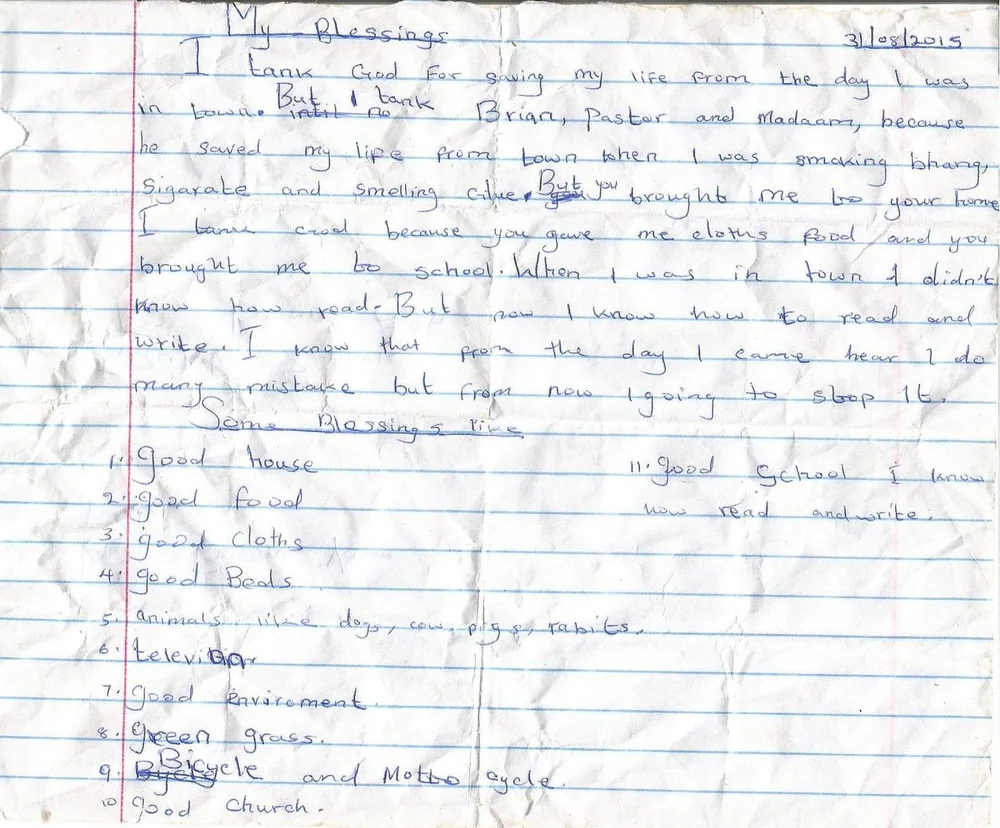 My Blessings
31/08/2015
I tank God For saving my life from the day I was
in town. But I tank Brian, Pastor and Madaam, because
he saved my life from town when I was smoking bhang,
Sigarate and smelling Glue. But you brought me to your home
I tank God because you gave me cloths food and you
brought me to school. When I was in town I didn't
know how read. But now I know how to read and
write. I know that from the day I came hear I do
many mistake but from now I going to stop It.
Some Blessings like
1. good house
2. good food
3. good Cloths
4. good Beds
5. animals like dogs, cow, pigs, rabits.
6. television
7. good enviroment.
8. green grass.
9. Bicycle and Motto cycle.
10 good church.
11. good School I know
how read and write.